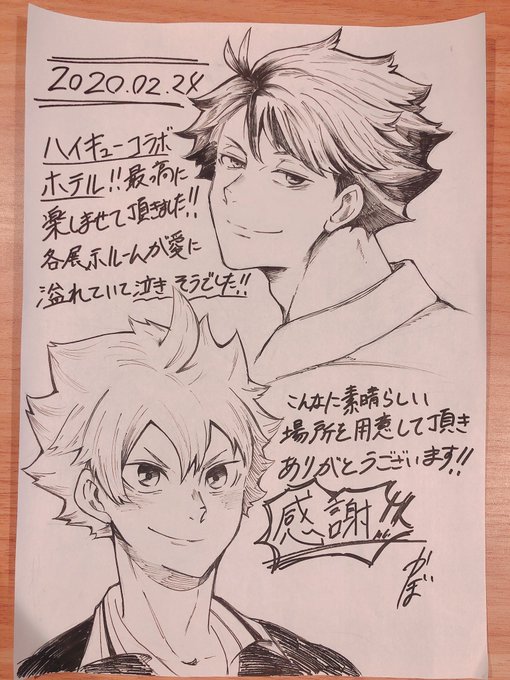 2020.02.24
ハイキューコラボ
ホテル!!最高に
楽しませて頂きました!!
各展示ルームが愛に
溢れていて泣きそうでした!!
こんなに素晴らしい
場所を用意して頂き
ありがとうございます!!
感謝!!
かぼ